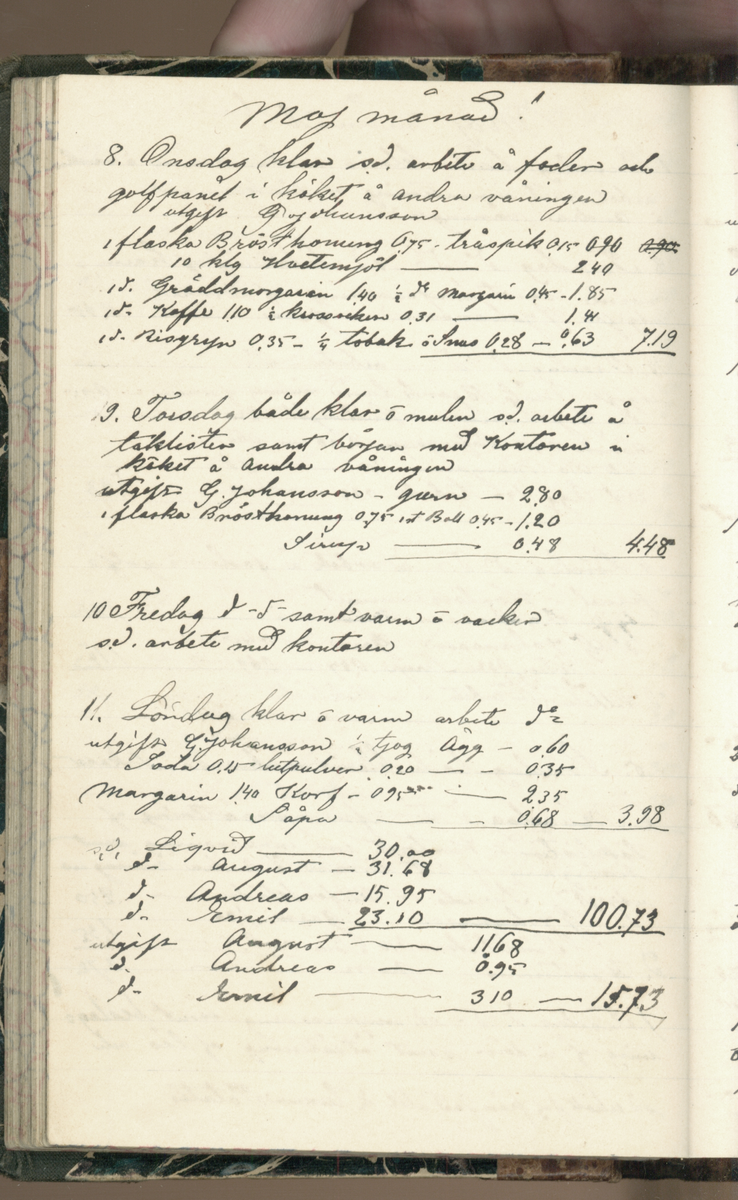 Maj månad !
8. Onsdag klar s.d. arbete å foder och
golfpanel i köket å andra våningen
utgift G Johansson
1 flaska Brösthonung 0,75 - tråspik 0.15 0.90 0.90
10 klg Hvetemjöl — 2.40
1 d. Gräddmargarin 1.40 ½ do margarin 0.45 - 1.85
1 d. Kaffe 1.10 ½ krossocker 0.31 — 1.41
1 d. Risgryn 0.35 - ¼ tobak o Snus 0.28 — 0.63 7.19
9. Torsdag både klar o mulen s.d. arbete å
taklisten samt början med Kontoren i
köket å andra våningen
utgift G. Johansson - garn — 2.80
1 flaska Brösthonung 0.75 1 st Ball 0.45 - 1.20
Sirap — 0.48 4.48
10 Fredag d - s - samt varm o vacker
s.d. arbete med kontoren
11. Lördag klar o varm arbete do
utgift G Johansson ½ tjog Ägg - 0.60
Soda 0.15 lutpulver 0.20 — - 0.35
Margarin 1.40 Korf - 0.95 — 2.35
Såpa — - 0.68 — 3.98
s.d. Liqvid — 30.00
d- August — 31.68
d- Andreas — 15.95
d- Emil — 23.10 — 100.73
utgift August — 11.68
d. Andreas — 0.95
d- Emil — 3.10 — 15.73